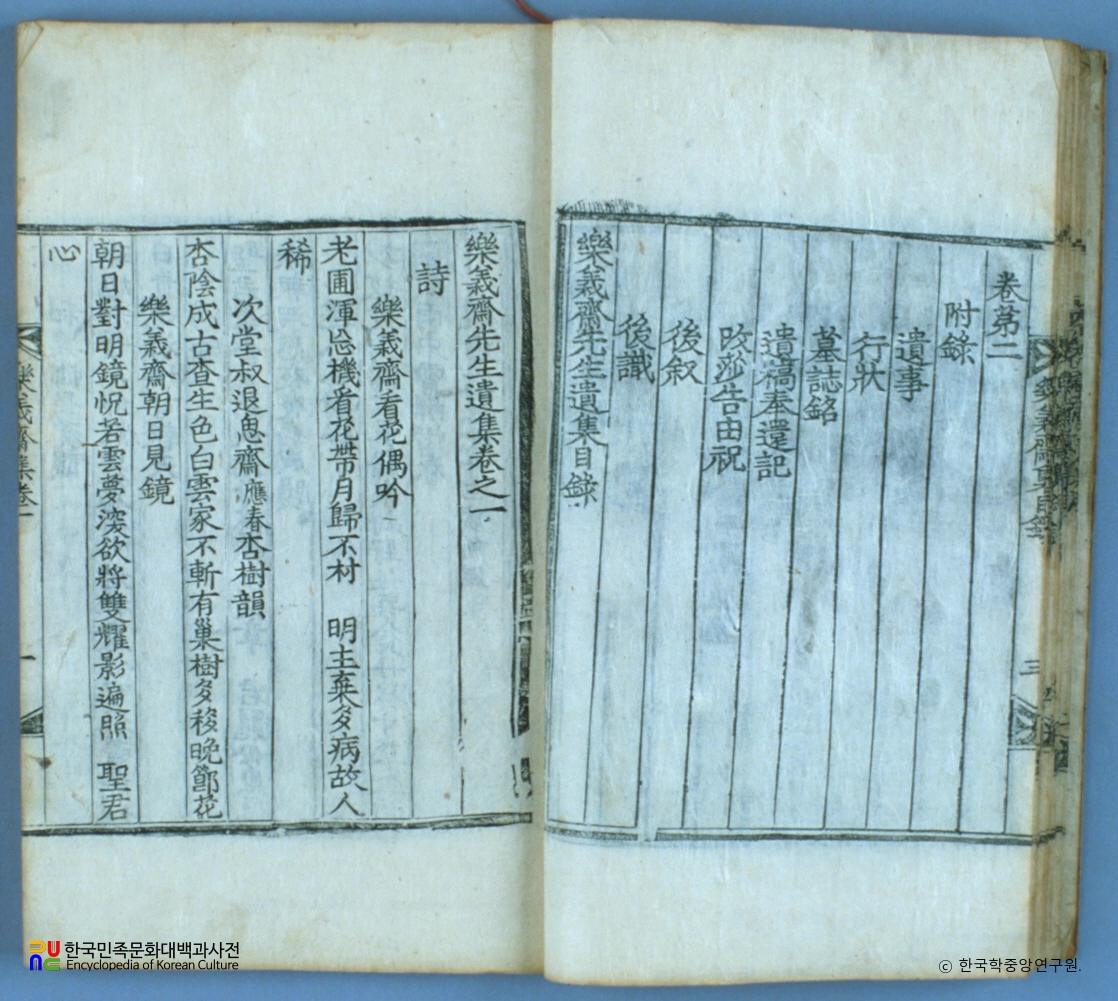 卷苐二
附錄
遺事
行狀
墓誌銘
遺稿奉還記
改莎告由祝
後叙
後識
樂義齋先生遺集目錄
三
樂義齋先生遺集卷之一
詩
樂義齋看花偶吟
老圃渾忘機看花帶月歸不材 明主棄多病故人
稀
次堂叔退思齋應春杏樹韻
杏陰成古査生色白雲家不斬有巢樹多稜晩節花
樂義齋朝日見鏡
朝日對明鏡怳若雲夢深欲將雙耀影遍照 聖君
心
樂義齋集卷一
一
한국민족문화대백과사전
Encyclopedia of Korean Culture
ⓒ 한국학중앙연구원.